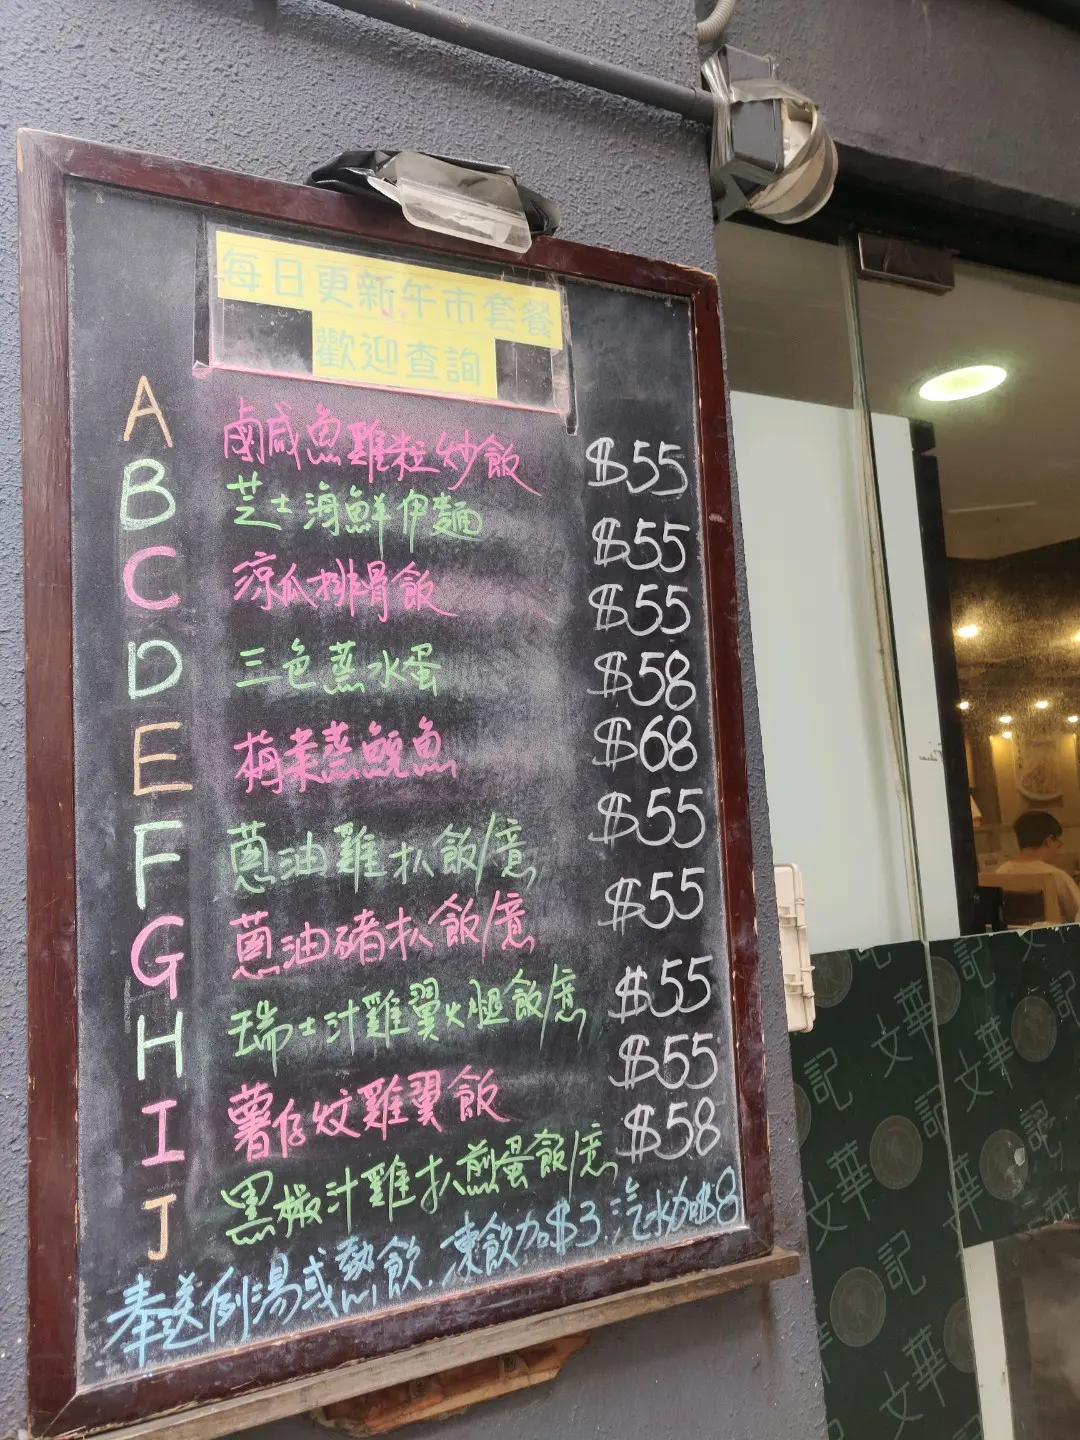 每日更新午市套餐
歡迎查詢
A 鹵咸魚雞粒炒飯 $55
B 芝士海鮮伊麵 $55
C 涼瓜排骨飯 $55
D 三色蒸水蛋 $58
E 梅菜蒸鯇魚 $68
F 蔥油雞扒飯/意 $55
G 蔥油豬扒飯/意 $55
H 瑞士汁雞翼火腿飯/意 $55
I 薯仔炆雞翼飯 $55
J 黑椒汁雞扒煎蛋飯/意 $58
奉送例湯或熱飲.凍飲加$3.汽水加$8
文華記